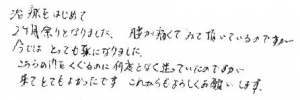 治療をはじめて
2ヶ月余りとなりました。膝が痛くてみて頂いているのですが
今ではとっても楽になりました。
こちらの門をくぐるのに何度となく迷っていたのですが
来てとてもよかったです これからもよろしくお願いします。